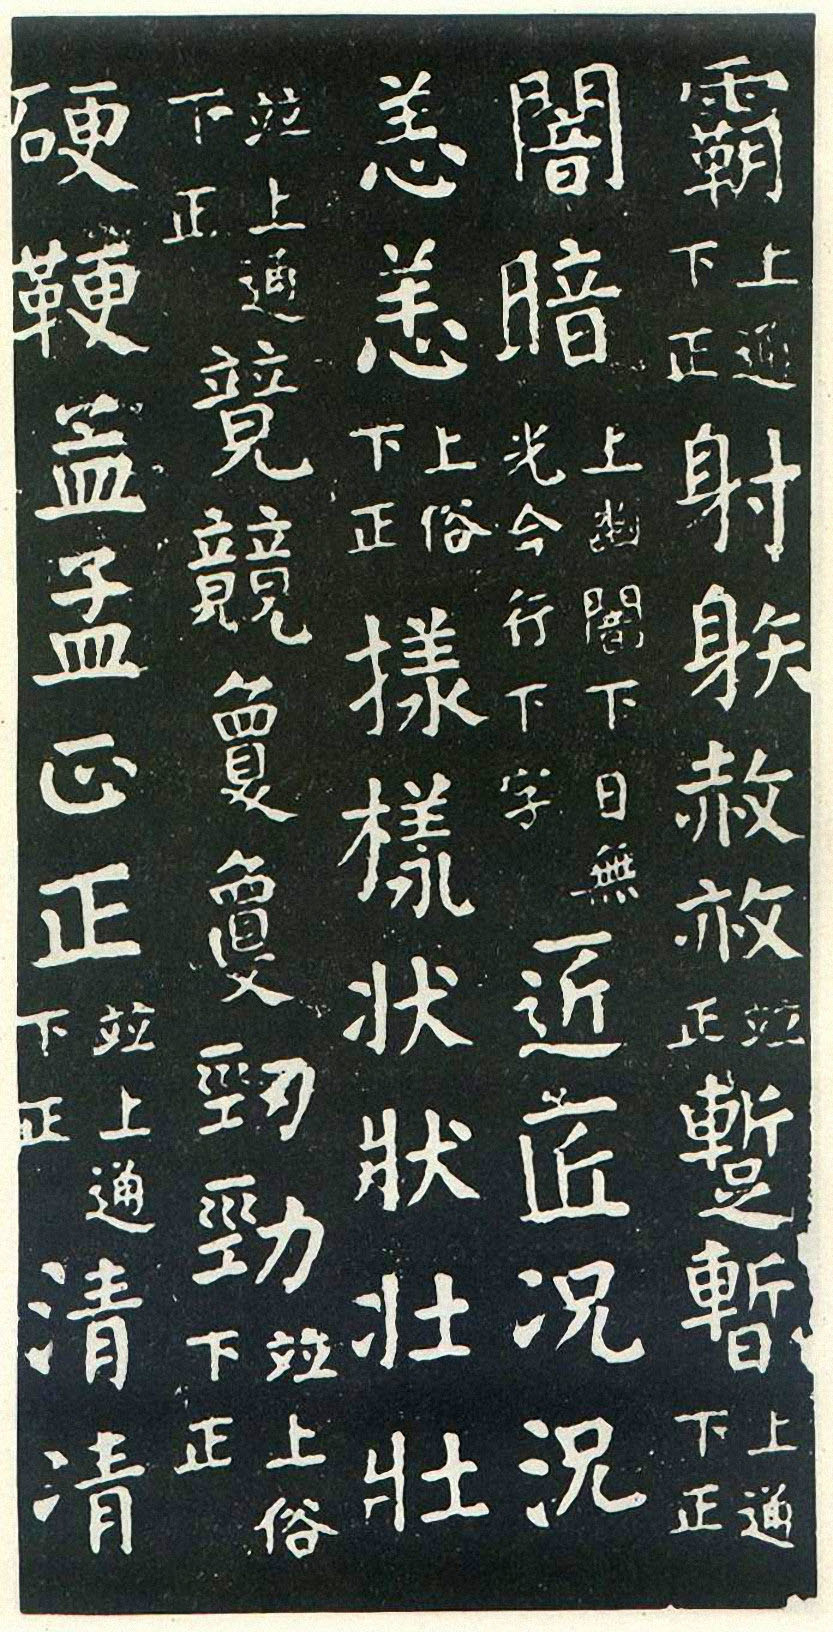 霸上通下正射䠶赦𢼜並正蹔暫上通下正
闇暗上幽闇下日無光今行下字近匠况況
恙恙上俗下正㨾樣状狀壮壯
並上通下正競夐夐勁勁並上俗下正
硬鞕孟孟正並上通下正清凊